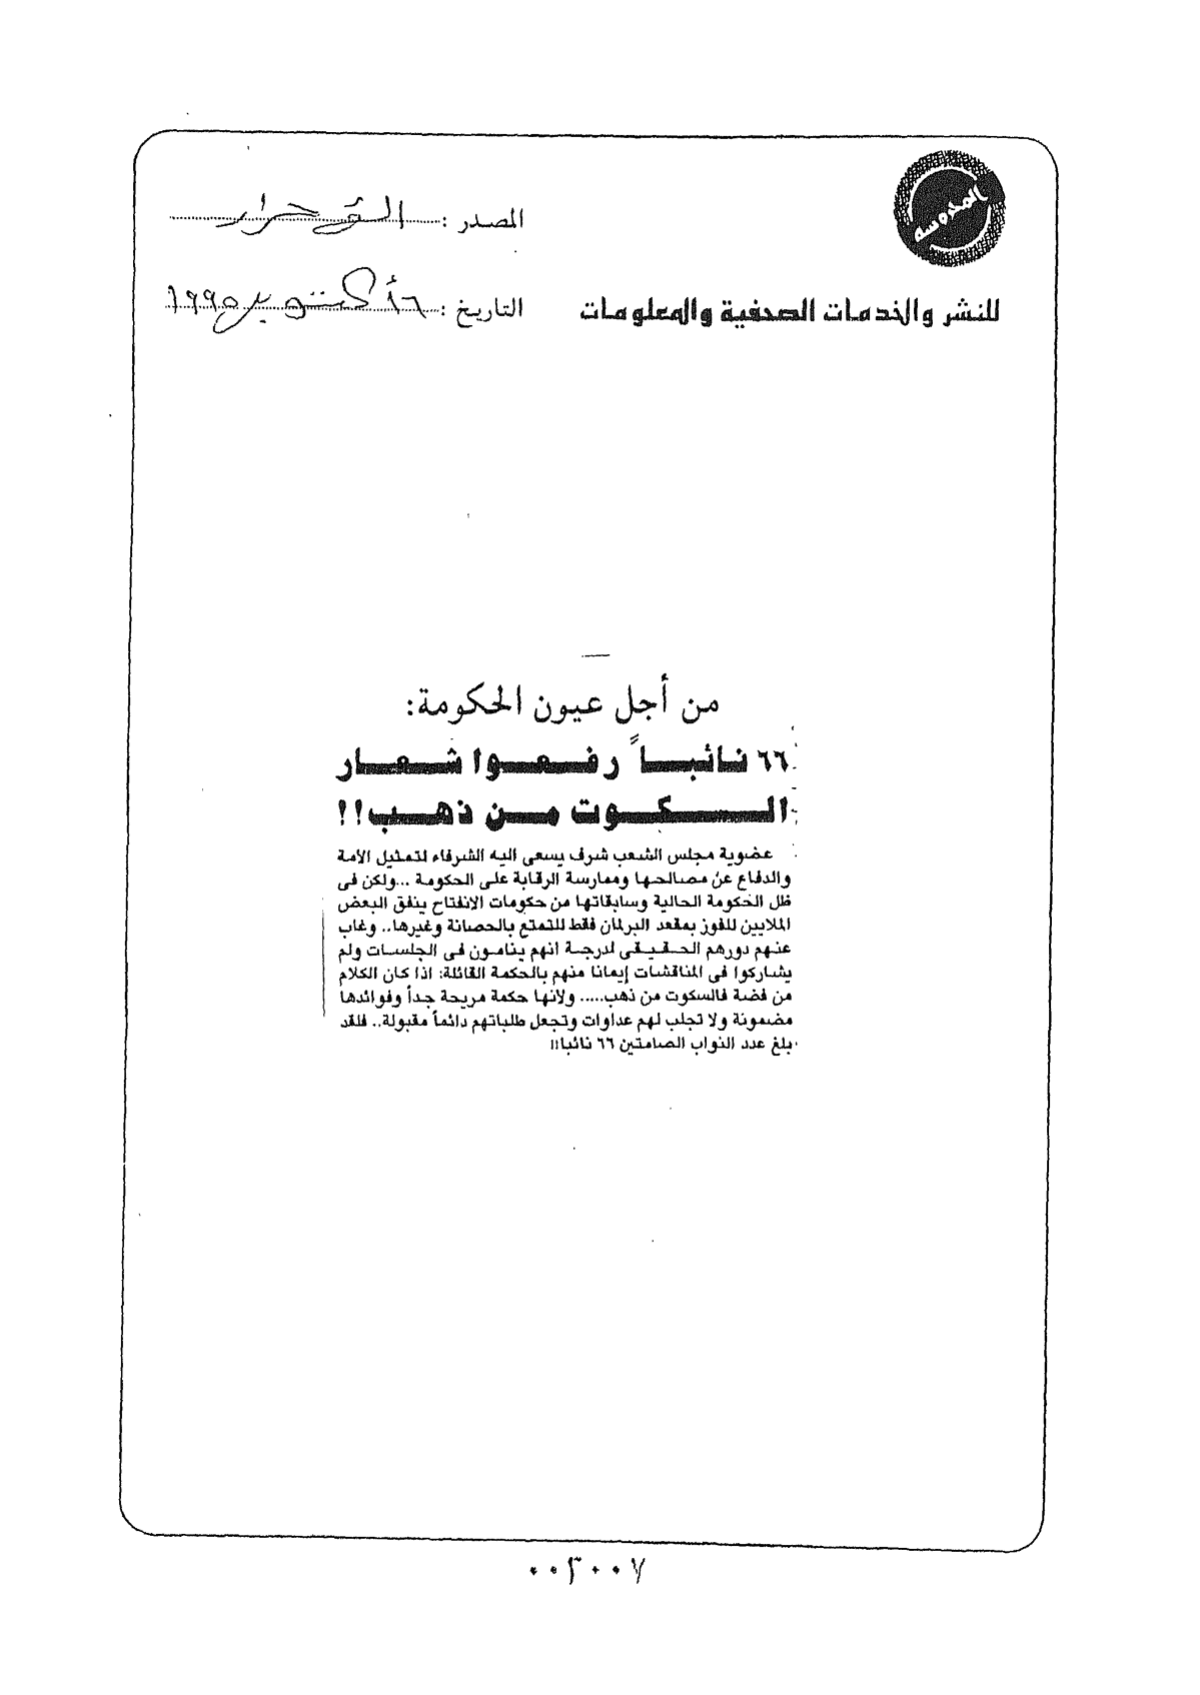 المحروسة
المصدر : الأحرار
للنشر والخدمات الصحفية والمعلومات
التاريخ : ١٦ أكتوبر ١٩٩٥
من أجل عيون الحكومة:
٦٦ نائباً رفعوا شعار
السكوت من ذهب!!
عضوية مجلس الشعب شرف يسعى اليه الشرفاء لتمثيل الأمة
والدفاع عن مصالحها وممارسة الرقابة على الحكومة ...ولكن فى
ظل الحكومة الحالية وسابقاتها من حكومات الانفتاح ينفق البعض
الملايين للفوز بمقعد البرلمان فقط للتمتع بالحصانة وغيرها.. وغاب
عنهم دورهم الحقيقى لدرجة انهم ينامون فى الجلسات ولم
يشاركوا فى المناقشات إيمانا منهم بالحكمة القائلة: اذا كان الكلام
من فضة فالسكوت من ذهب..... ولانها حكمة مريحة جداً وفوائدها
مضمونة ولا تجلب لهم عداوات وتجعل طلباتهم دائماً مقبولة.. فلقد
بلغ عدد النواب الصامتين ٦٦ نائبا!!
٠٠٣٠٠٧